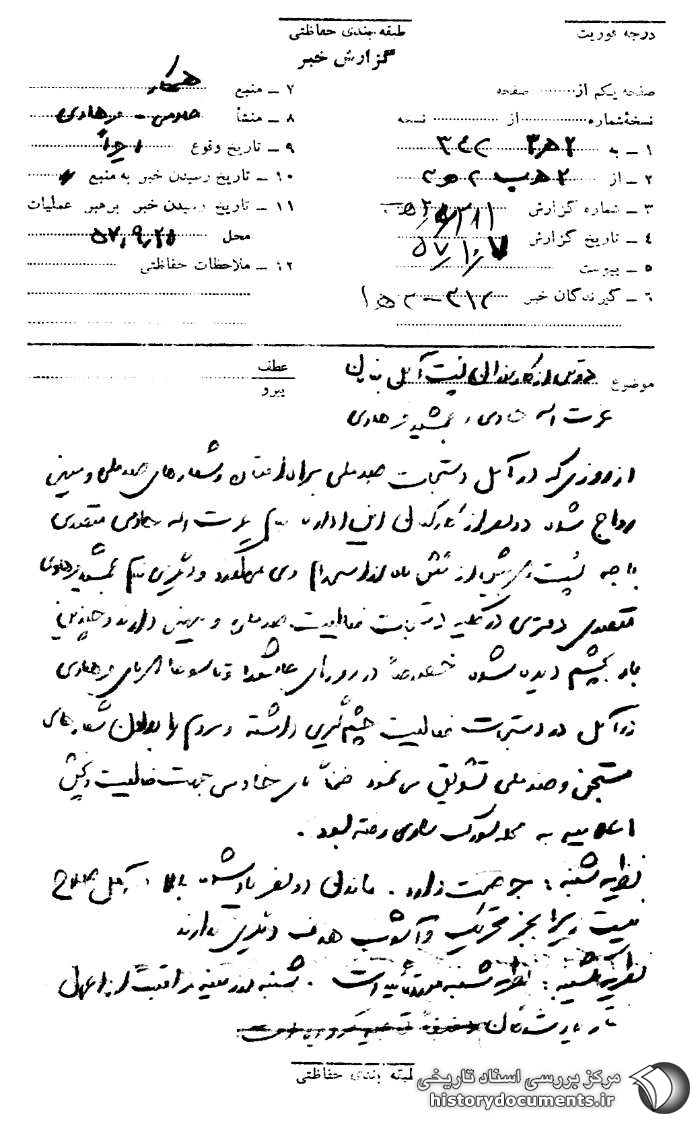 طبقه بندی حفاظتی
درجه فوریت
گزارش خبر
صفحه یکم از ........ صفحه
نسخهٔ شماره ........ از ........ نسخه
۱ ـ به ۲ ه‍ ۳ ۳۴۲
۲ ـ از ۲ ه‍ ب
۳ ـ شماره گزارش
۴ ـ تاریخ گزارش ۵۷/۱۰/۷
۵ ـ پیوست
۶ ـ گیرندگان خبر ۳۱۲ ـ
۷ ـ منبع همکار
۸ ـ منشأ خادمی ـ فرهادی
۹ ـ تاریخ وقوع اخیراً
۱۰ ـ تاریخ رسیدن خبر به منبع
۱۱ ـ تاریخ رسیدن خبر برهبر عملیات
محل ۵۷،۹،۲۵
۱۲ ـ ملاحظات حفاظتی
موضوع دو تن از کارمندان ثبت آمل بنام
عطف
پیرو
عزت اله خادمی و جمشید فرهادی
از روزی که در آمل دستجات ضد ملی براه افتادن و شعارهای ضد ملی و میهنی
رواج شد دو نفر از کارکنان این اداره بنام عزت اله خادمی متصدی
بایگانی ثبت که بیش از شش ماه در این اداره و دیگری بنام جمشید فرهادی
متصدی دفتری در کلیه دستجات فعالیت ضد ملی و میهنی دارند و چندین
بار بچشم دیده شد خصوصاً در روزهای عاشورا و تاسوعا آقای فرهادی
در آمل در دستجات فعالیت چشم گیری داشته و مردم را بدادن شعارهای
مستهجن و ضد ملی تشویق می نمود ضمناً آقای خادمی جهت فعالیت و پخش
اعلامیه به محل رفته بود .
نظریه شنبه : صحت دارد . ماندن دو نفر یاد شده بالا در آمل صلاح
نیست زیرا بجز تحریک و آشوب هدف دیگری ندارند
نظریه یکشنبه : نظریه شنبه مورد تأیید است . شنبه در زمینه مراقبت از اعمال
نامبردشدگان
طبقه بندی حفاظتی
مرکز بررسی اسناد تاریخی
historydocuments.ir